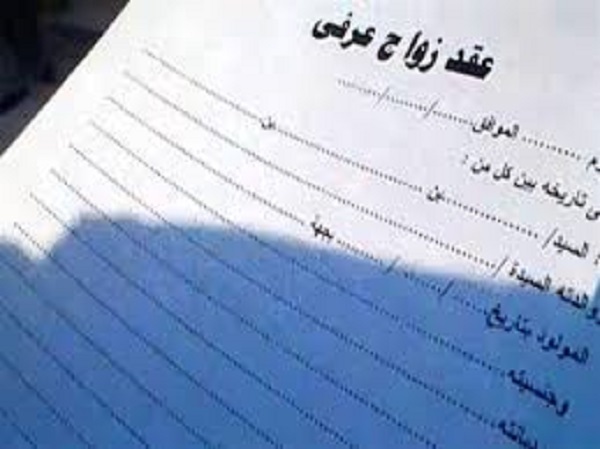 عقد زواج عرفى
الموافق ....../....../......
تاريخه بين كل من :
السيد/ .................. بن .................. بن
والدته السيدة / ..................
المولود بتاريخ ....../....../...... بجهة ..................
وجنسيته ..................
ديانته ..................